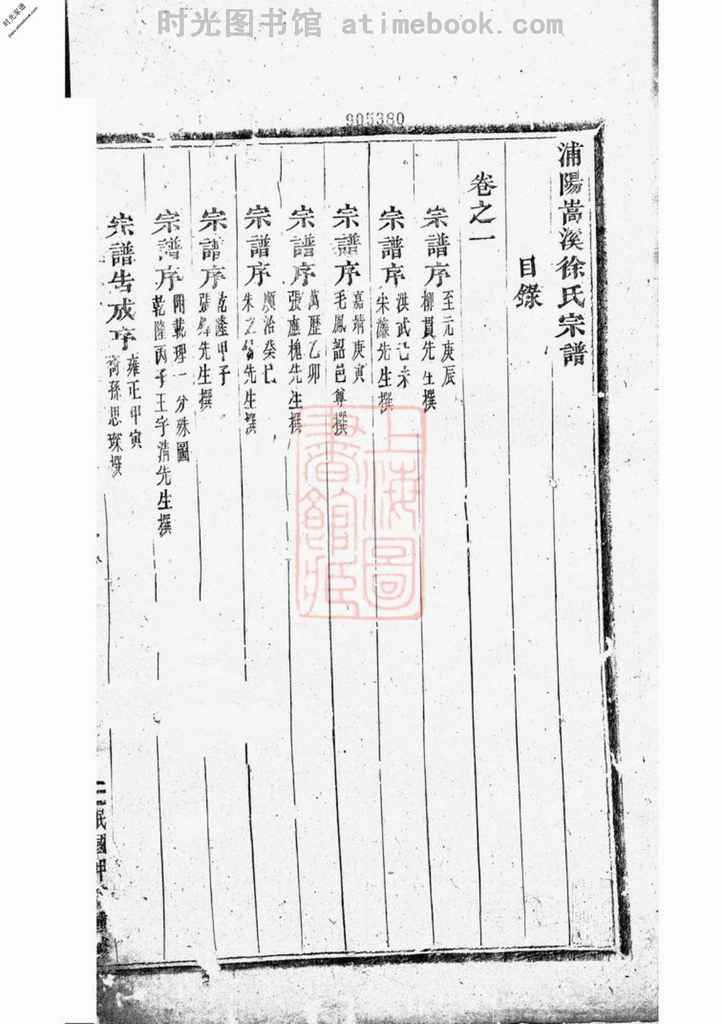 时光图书馆 atimebook.com
时光家谱
www.atimebook.com
905380
浦陽嵩溪徐氏宗譜
目錄
卷之一
宗譜序 至元庚辰 柳貫先生撰
宗譜序 洪武己未 宋濂先生撰
宗譜序 嘉靖庚寅 毛鳳韶邑尊撰
宗譜序 萬歷乙卯 張應槐先生撰
宗譜序 順治癸巳 朱之 先生撰
宗譜序 乾隆甲子 張 先生撰
宗譜序 附載理一分殊圖 乾隆丙子王宇清先生撰
宗譜告成序 雍正甲寅 裔孫思琛撰
民國
上海圖書館藏